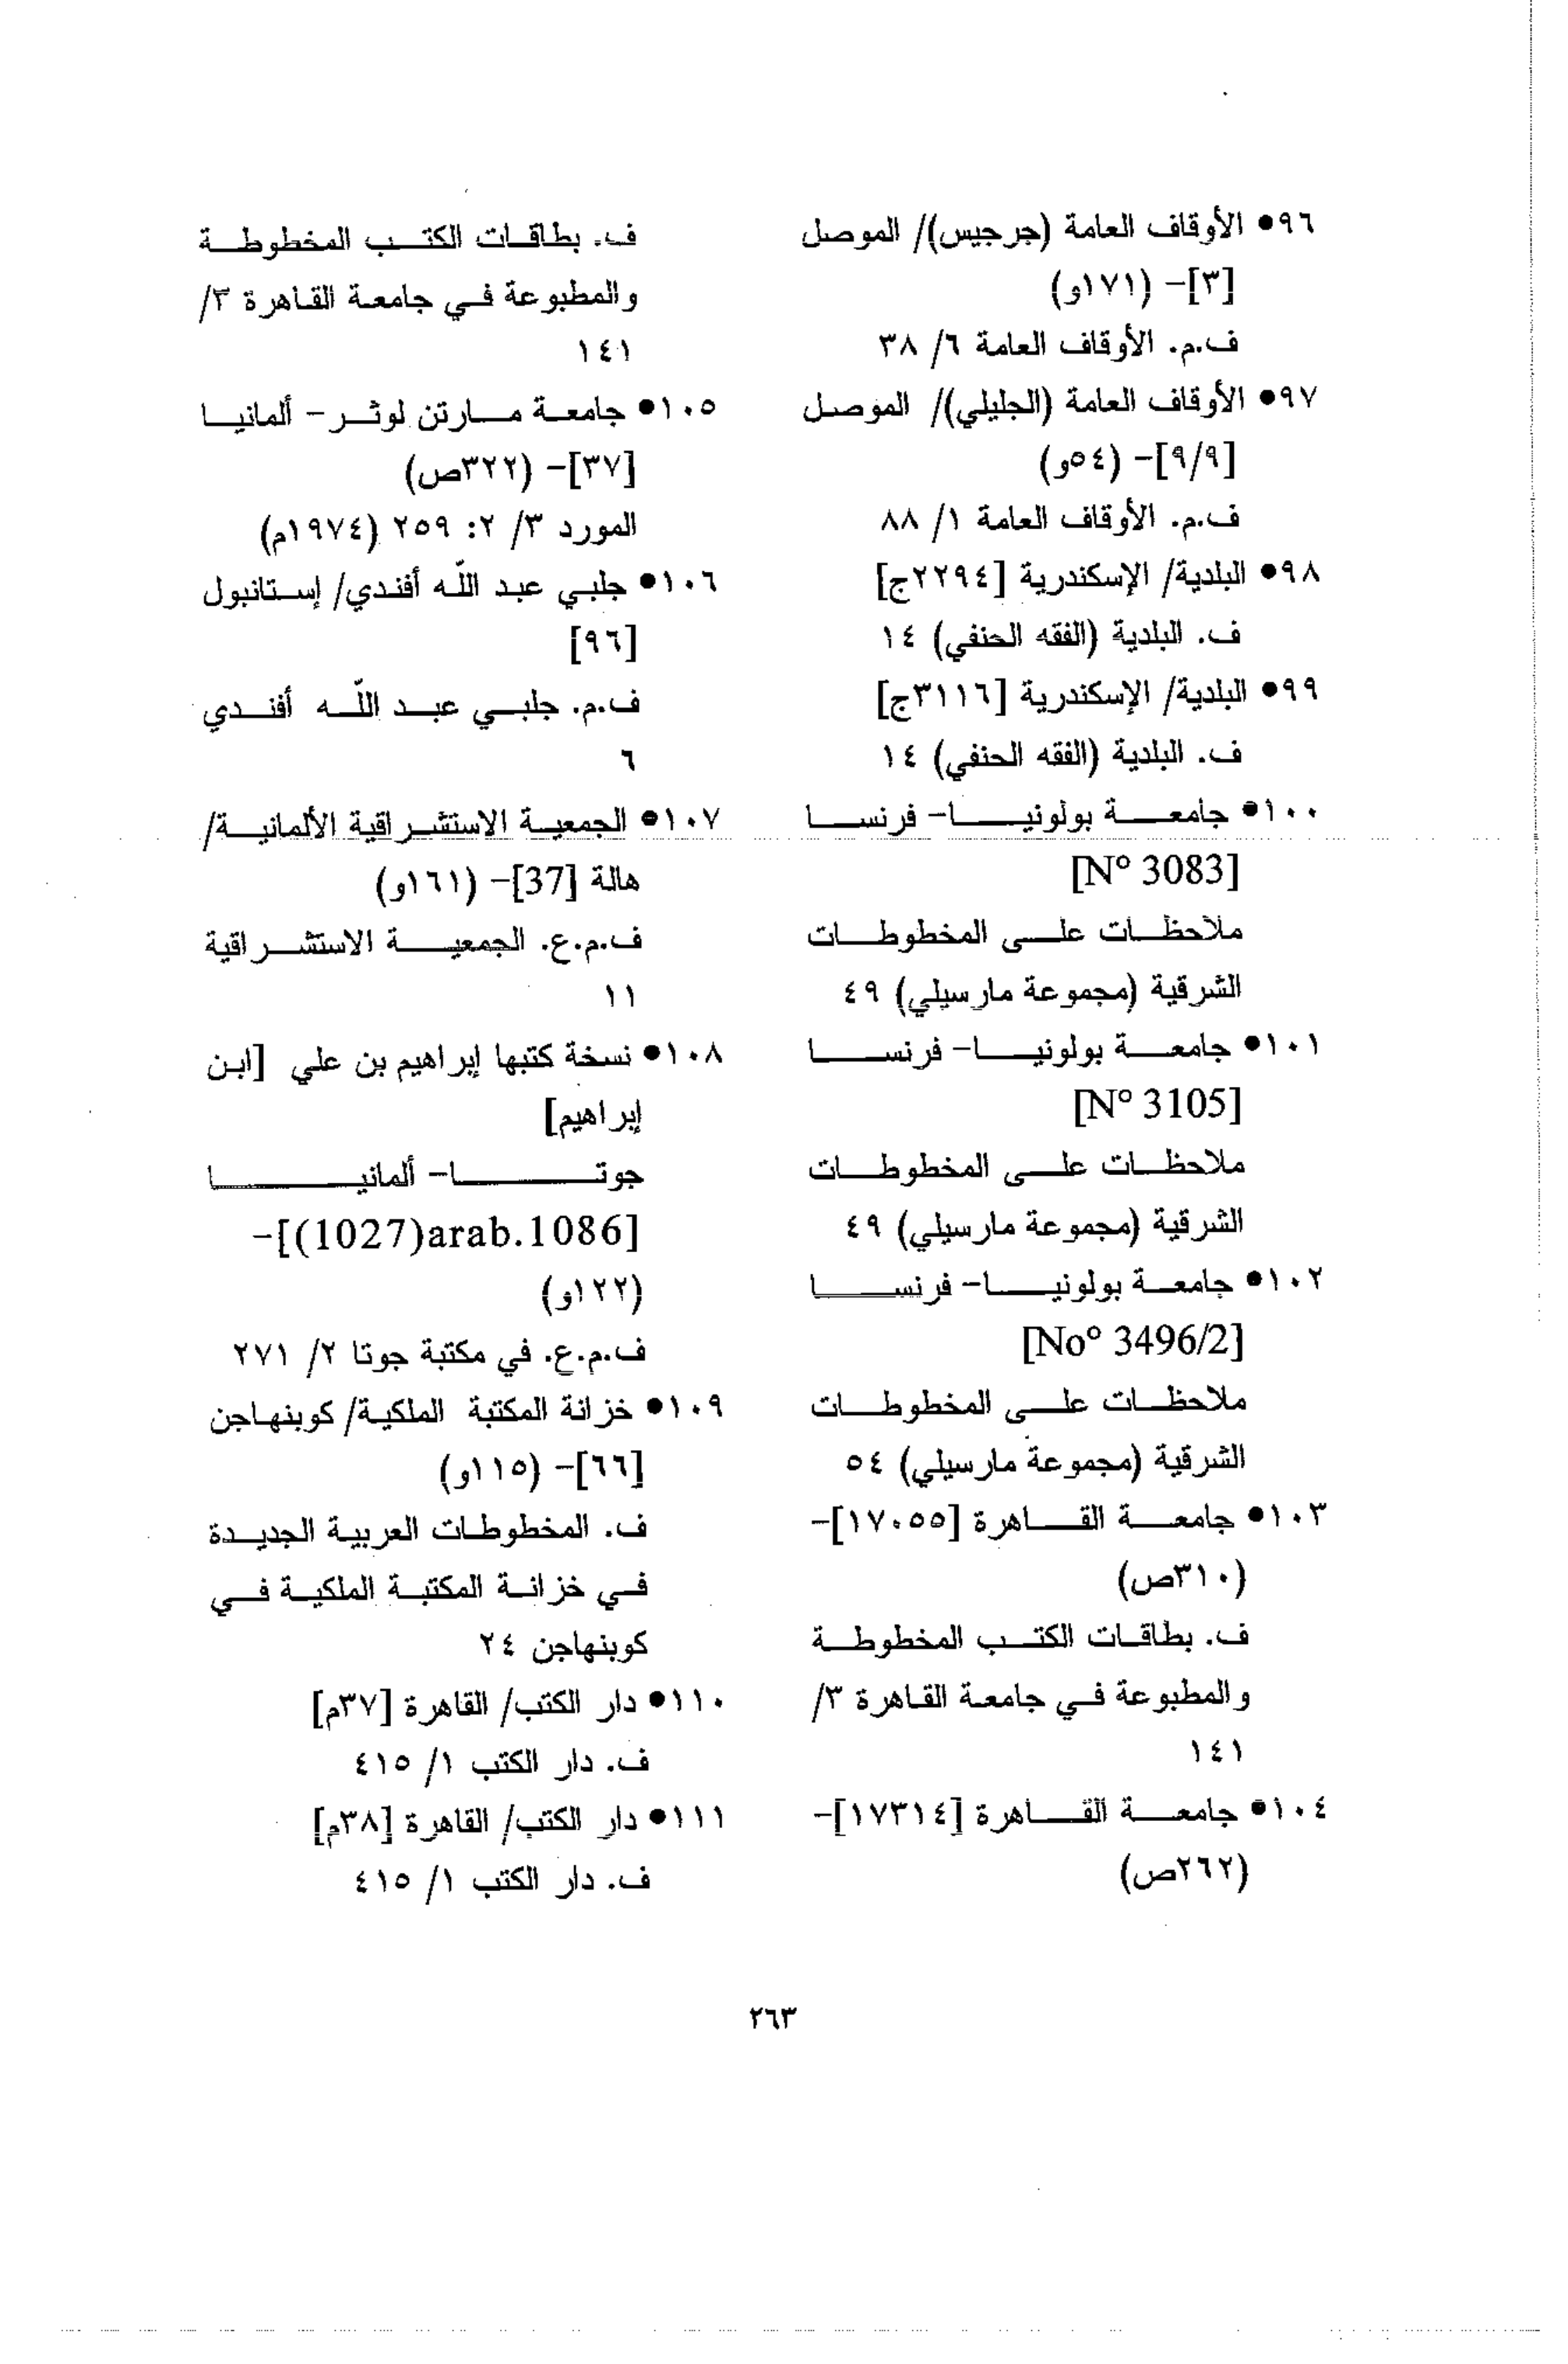 ٩٦● الأوقاف العامة (جرجيس)/ الموصل
[٣]- (١٧١و)
ف.م. الأوقاف العامة ٦/ ٣٨
٩٧● الأوقاف العامة (الجليلي)/ الموصل
[٩/٩]- (٥٤و)
ف.م. الأوقاف العامة ١/ ٨٨
٩٨● البلدية/ الإسكندرية [٢٢٩٤ج]
ف. البلدية (الفقه الحنفي) ١٤
٩٩● البلدية/ الإسكندرية [٣١١٦ج]
ف. البلدية (الفقه الحنفي) ١٤
١٠٠● جامعة بولونيا- فرنسا
[N° 3083]
ملاحظات على المخطوطات
الشرقية (مجموعة مارسيلي) ٤٩
١٠١● جامعة بولونيا- فرنسا
[N° 3105]
ملاحظات على المخطوطات
الشرقية (مجموعة مارسيلي) ٤٩
١٠٢● جامعة بولونيا- فرنسا
[No° 3496/2]
ملاحظات على المخطوطات
الشرقية (مجموعة مارسيلي) ٥٤
١٠٣● جامعة القاهرة [١٧٠٥٥]-
(٣١٠ص)
ف. بطاقات الكتب المخطوطة
والمطبوعة في جامعة القاهرة ٣/
١٤١
١٠٤● جامعة القاهرة [١٧٣١٤]-
(٢٦٢ص)
ف. بطاقات الكتب المخطوطة
والمطبوعة في جامعة القاهرة ٣/
١٤١
١٠٥● جامعة مارتن لوثر- ألمانيا
[٣٧]- (٣٢٢ص)
المورد ٣/ ٢: ٢٥٩ (١٩٧٤م)
١٠٦● جلبي عبد اللّه أفندي/ إستانبول
[٩٦]
ف.م. جلبي عبد اللّه أفندي
٦
١٠٧● الجمعية الاستشراقية الألمانية/
هالة [37]- (١٦١و)
ف.م.ع. الجمعية الاستشراقية
١١
١٠٨● نسخة كتبها إبراهيم بن علي [ابن
إبراهيم]
جوتا- ألمانيا
[arab.1086(1027)]-
(١٢٢و)
ف.م.ع. في مكتبة جوتا ٢/ ٢٧١
١٠٩● خزانة المكتبة الملكية/ كوبنهاجن
[٦٦]- (١١٥و)
ف. المخطوطات العربية الجديدة
في خزانة المكتبة الملكية في
كوبنهاجن ٢٤
١١٠● دار الكتب/ القاهرة [٣٧م]
ف. دار الكتب ١/ ٤١٥
١١١● دار الكتب/ القاهرة [٣٨م]
ف. دار الكتب ١/ ٤١٥
٢٦٣